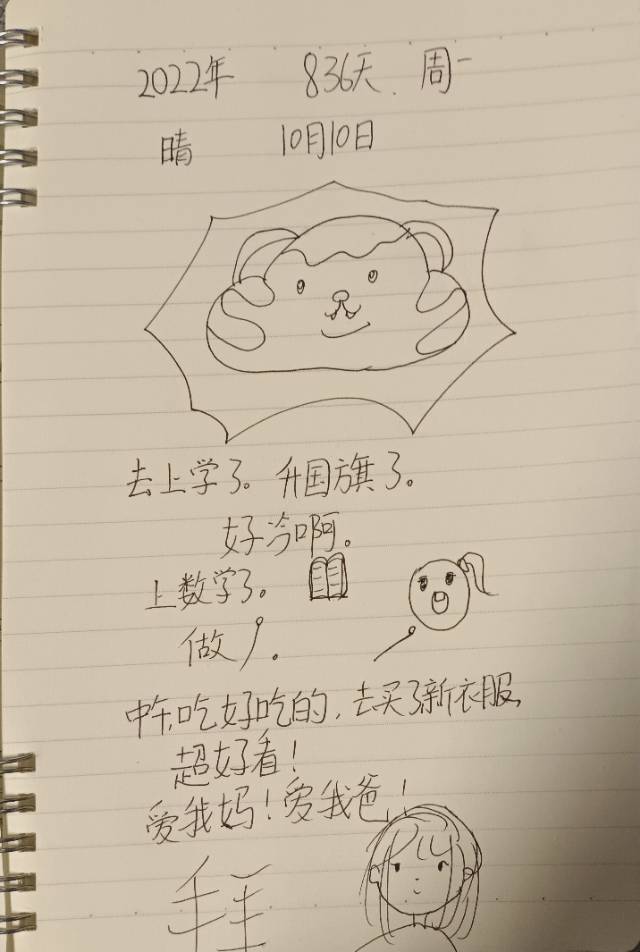 2022年 836天. 周一
晴 10月10日
去上学了。升国旗了。
好冷啊。
上数学了。
做 。
中午吃好吃的, 去买了新衣服,
超好看!
爱我妈!爱我爸!
拜